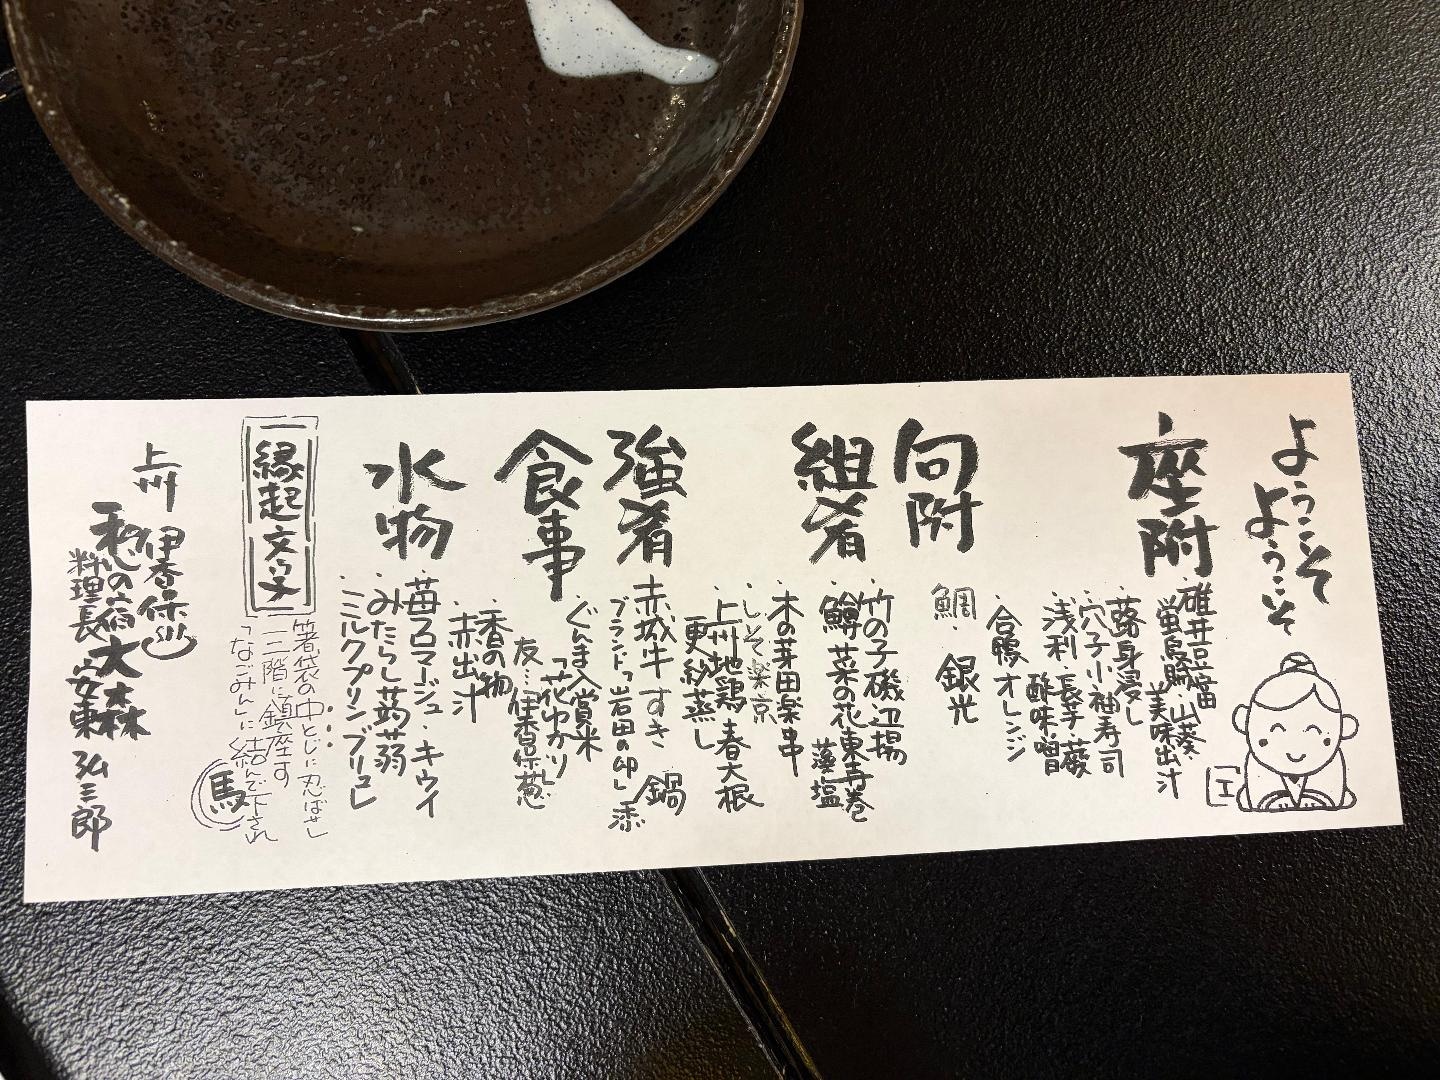 ようこそ
ようこそ
エ
座附
・碓井豆富
・蛍烏賊・山葵・
美味出汁
・蕗身浸し
・穴子小袖寿司
・浅利・長芋・蕨
酢味噌
・合鴨オレンジ
向附
鯛・銀光
組肴
・竹の子磯辺揚
・鱒菜の花東寺巻
藻塩
・木の芽田楽串
・しそ楽京
・上州地鶏・春大根
更紗蒸し
強肴
赤城牛すき鍋
ブランド「岩田の卵」添
食事
・ぐんま入賞米
「花ゆかり」
友…伊香保葱
・香の物
・赤出汁
水物
・苺フロマージュ・キウイ
・みたらし蒟蒻
・ミルクプリンブリュレ
縁起文字
箸袋の中とじに忍ばせし
二階に鎮座す
「なごみん」に結んで下され
馬
上州
伊香保
和心の宿大森
料理長安東弘三郎